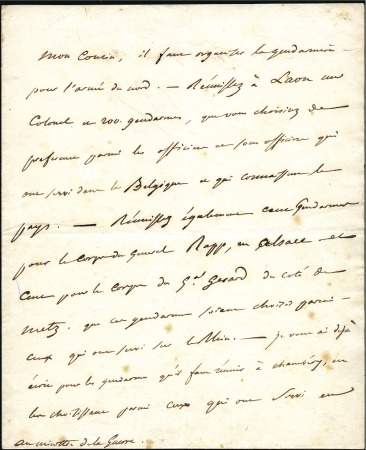 Mon Cousin, il faut organiser la gendarmerie
pour l'armée du nord. — Réunissez à Laon un
Colonel et 200 gendarmes, que vous choisirez de
preference parmi les officiers et sous officiers qui
ont servi dans la Belgique et qui connaissent le
pays. — Réunissez également cent Gendarmes
pour le Corps du General Rapp, en Alsace et
Cent pour le Corps du Gal Gerard du coté de
Metz. que ces gendarmes soient choisis parmi
ceux qui ont servi sur le Rhin. — je vous ai déjà
écrit pour les gendarmes qu'il faut réunir à chambery, en
les choisissant parmi ceux qui ont servi en
au ministre de la Guerre.